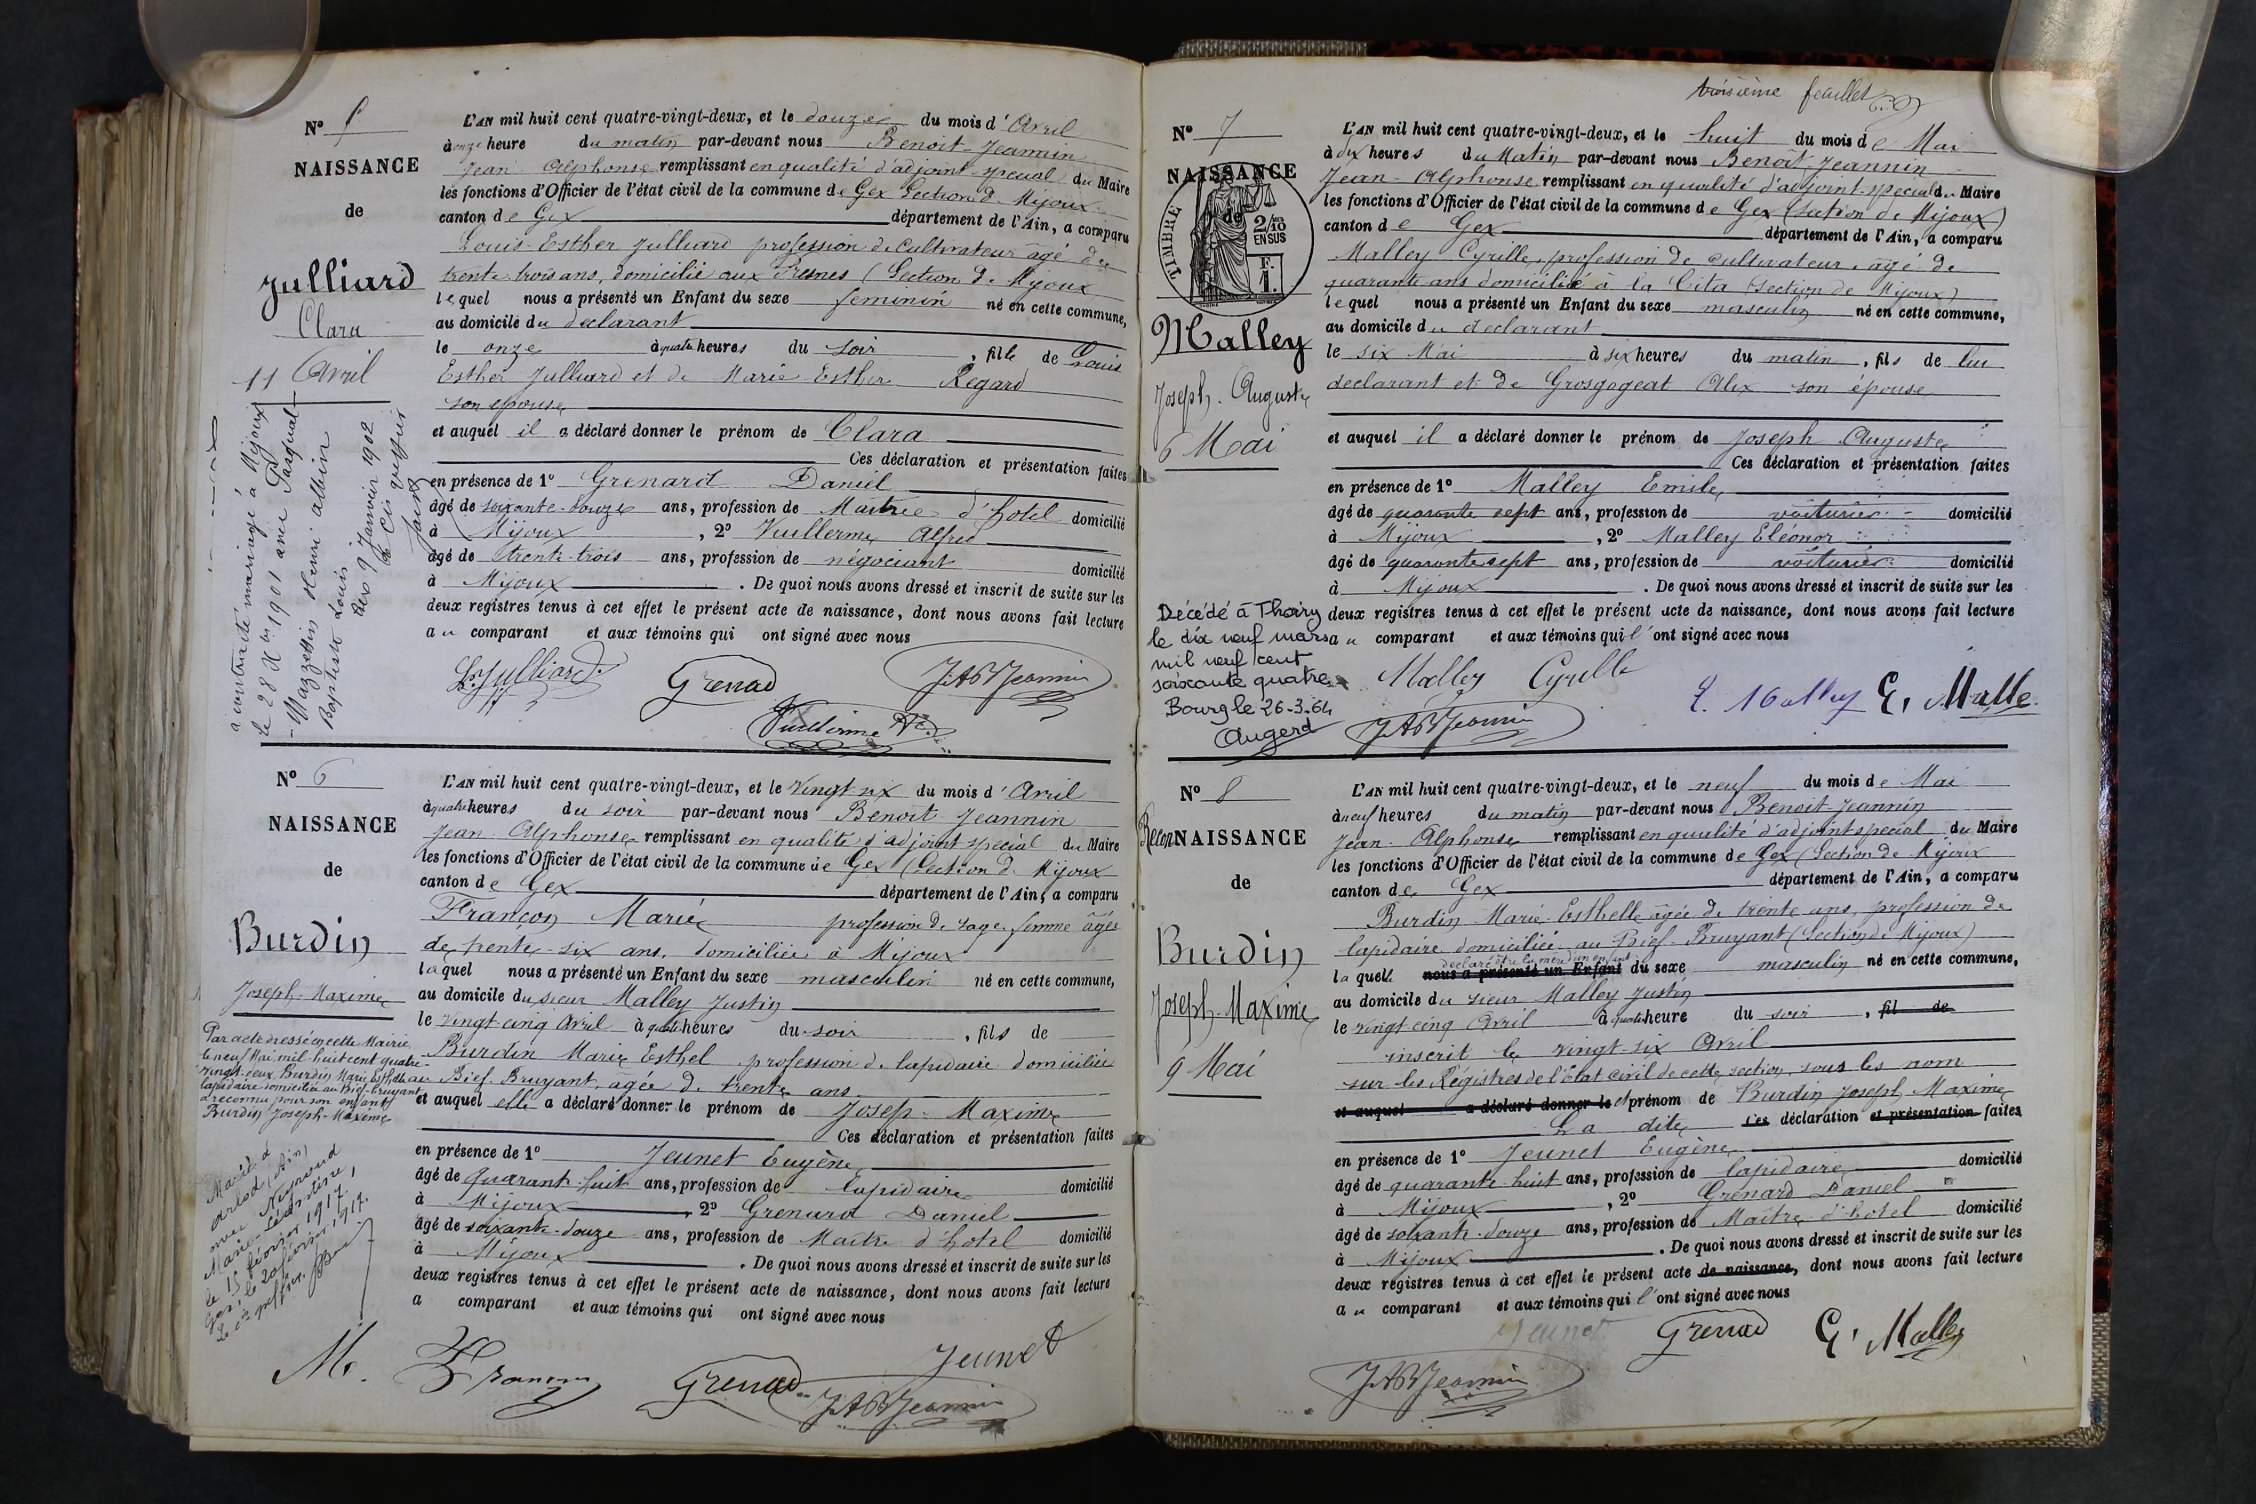 N° 5
NAISSANCE
de
Julliard
Clara
11 Avril
a contracté mariage à Mijoux
le 28 Xbre 1901 avec Pasqual
- Mazzettin Henri albin
Baptiste Louis
Gex 9 Janvier 1902
Le Cis greffier
L'AN mil huit cent quatre-vingt-deux, et le douze du mois d'Avril
à onze heure du matin par-devant nous Benoit-Jeannin
Jean Alphonse remplissant en qualité d'adjoint-special du Maire
les fonctions d'Officier de l'état civil de la commune de Gex Section de Mijoux
canton de Gex département de l'Ain, a comparu
Louis-Esther Julliard profession de Cultivateur âgé de
trente-trois ans, domicilié aux (Section de Mijoux
lequel nous a présenté un Enfant du sexe feminin né en cette commune,
au domicile du declarant
le onze à quatre heures du soir, fille de Louis
Esther Julliard et de Marie Esther Regard
son epouse
et auquel il a déclaré donner le prénom de Clara
Ces déclaration et présentation faites
en présence de 1° Grenard Daniel
âgé de soixante-douze ans, profession de Maitre d'hotel domicilié
à Mijoux, 2° Vuillerme Alfred
âgé de trente-trois ans, profession de négociant domicilié
à Mijoux. De quoi nous avons dressé et inscrit de suite sur les
deux registres tenus à cet effet le présent acte de naissance, dont nous avons fait lecture
au comparant et aux témoins qui ont signé avec nous
Julliard Grenad J.A.B Jeannin
Vuillerme
N° 6
NAISSANCE
de
Burdin
Joseph-Maxime
Par acte dressé en cette Mairie
le neuf Mai mil-huit cent quatre-
vingt-deux, Burdin Marie Esthelle
lapidaire domiciliée au Bief-bruyant
a reconnu pour son enfant
Burdin Joseph-Maxime
Marié à
Arlod (Ain)
avec
Marie-Léontine,
le 15 février 1917.
Gex, le 20 février 1917.
Le greffier.
L'AN mil huit cent quatre-vingt-deux, et le vingt-six du mois d'Avril
à quatre heures du soir par-devant nous Benoit Jeannin
Jean-Alphonse remplissant en qualité d'adjoint special du Maire
les fonctions d'Officier de l'état civil de la commune de Gex (Section de Mijoux
canton de Gex département de l'Ain, a comparu
Françon Marie profession de sage-femme âgée
de trente-six ans, domiciliée à Mijoux
laquel nous a présenté un Enfant du sexe masculin né en cette commune,
au domicile du sieur Malley Justin
le vingt-cinq Avril à quatre heures du soir, fils de
Burdin Marie Esthel profession de lapidaire domiciliée
au Bief-Bruyant, âgée de trente ans
et auquel elle a déclaré donner le prénom de Josep-Maxime
Ces déclaration et présentation faites
en présence de 1° Jeunet Eugène
âgé de quarante-huit ans, profession de lapidaire domicilié
à Mijoux, 2° Grenard Daniel
âgé de soixante-douze ans, profession de Maitre d'hotel domicilié
à Mijoux. De quoi nous avons dressé et inscrit de suite sur les
deux registres tenus à cet effet le présent acte de naissance, dont nous avons fait lecture
a comparant et aux témoins qui ont signé avec nous
M. Françon Grenad Jeunet
J.A.B Jeannin
troisième feuillet
N° 7
NAISSANCE
de
TIMBRE
2/10
EN SUS
F.
1.
Malley
Joseph-Auguste
6 Mai
Décédé à Thoiry
le dix neuf mars
mil neuf cent
soixante quatre
Bourg le 26-3-64
Augerd
L'AN mil huit cent quatre-vingt-deux, et le huit du mois de Mai
à dix heures du Matin par-devant nous Benoît Jeannin
Jean-Alphonse remplissant en qualité d'adjoint-special du Maire
les fonctions d'Officier de l'état civil de la commune de Gex (Section de Mijoux)
canton de Gex département de l'Ain, a comparu
Malley Cyrille, profession de cultivateur, âgé de
quarante ans domicilié à la Cita (Section de Mijoux)
lequel nous a présenté un Enfant du sexe masculin né en cette commune,
au domicile du declarant
le six Mai à six heures du matin, fils de lui
declarant et de Grosgogeat Alix son épouse
et auquel il a déclaré donner le prénom de Joseph Auguste
Ces déclaration et présentation faites
en présence de 1° Malley Emile,
âgé de quarante sept ans, profession de voiturier domicilié
à Mijoux, 2° Malley Eléonor
âgé de quarante sept ans, profession de voiturier domicilié
à Mijoux. De quoi nous avons dressé et inscrit de suite sur les
deux registres tenus à cet effet le présent acte de naissance, dont nous avons fait lecture
au comparant et aux témoins qui l'ont signé avec nous
Malley Cyrille E. Malley E. Malle
J.A.B Jeannin
N° 8
ReconNAISSANCE
de
Burdin
Joseph-Maxime
9 Mai
L'AN mil huit cent quatre-vingt-deux, et le neuf du mois de Mai
à neuf heures du matin par-devant nous Benoit-Jeannin
Jean-Alphonse remplissant en qualité d'adjoint special du Maire
les fonctions d'Officier de l'état civil de la commune de Gex (Section de Mijoux
canton de Gex département de l'Ain, a comparu
Burdin Marie-Esthelle âgée de trente ans, profession de
lapidaire domiciliée au Bief-Bruyant (Section de Mijoux)
declaré être la mère d'un enfant
laquelle nous a présenté un Enfant du sexe masculin né en cette commune,
au domicile du sieur Malley Justin
le vingt-cinq Avril à quatre heure du soir, fil de
inscrit le vingt-six Avril
sur les Régistres de l'Etat civil de cette section, sous les nom
et auquel a déclaré donner le et prénom de Burdin Joseph Maxime
La dite Ces déclaration et présentation faites
en présence de 1° Jeunet Eugène
âgé de quarante-huit ans, profession de lapidaire domicilié
à Mijoux, 2° Grenard Daniel
âgé de soixante-douze ans, profession de Maitre d'hotel domicilié
à Mijoux. De quoi nous avons dressé et inscrit de suite sur les
deux registres tenus à cet effet le présent acte de naissance, dont nous avons fait lecture
au comparant et aux témoins qui l'ont signé avec nous
Jeunet Grenad E. Malley
J.A.B Jeannin